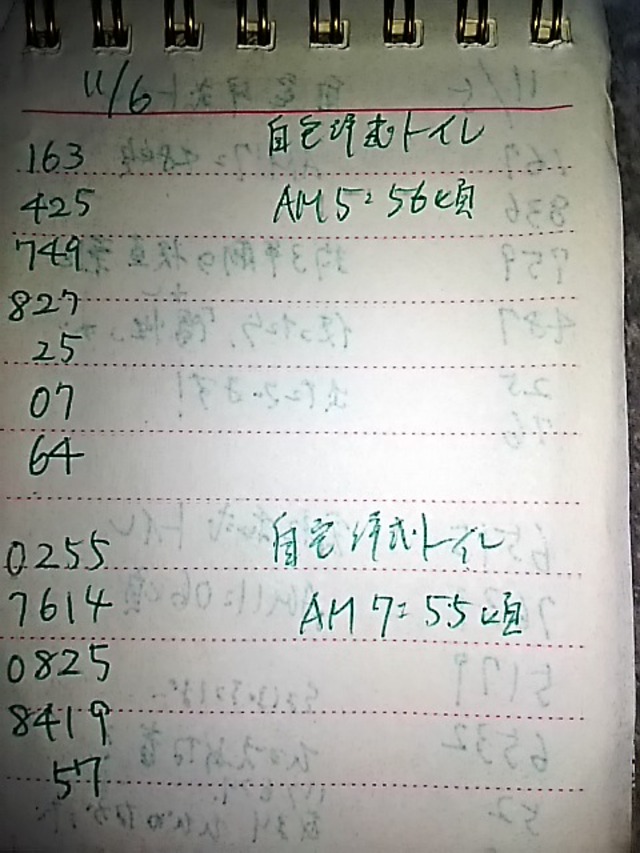 11/6
自宅洋式トイレ
163
425 AM5:56頃
749
827
25
07
64
自宅洋式トイレ
0255
7614 AM7:55頃
0825
8419
57